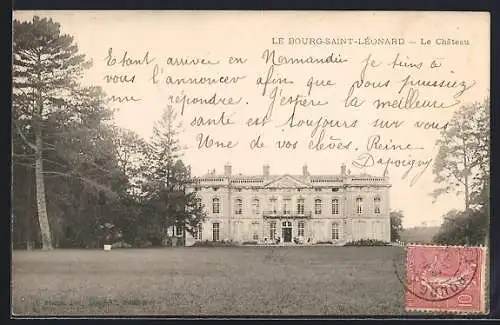 LE BOURG-SAINT-LÉONARD — Le Château
Etant arrivée en Normandie je tiens à
vous l'annoncer afin que vous puissiez
me répondre. J'espère que la meilleure
santé est toujours sur vous
Une de vos élèves. Reine
10